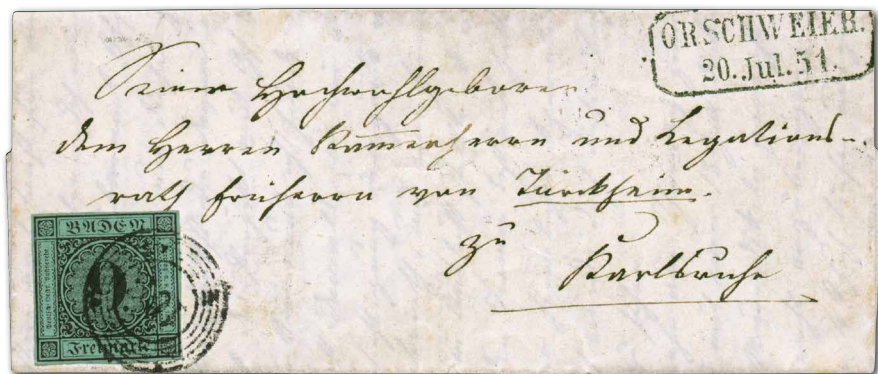 ORSCHWEIER.
20. Jul. 51.
Seiner Hochwohlgeboren
dem Herren Kammerherrn und Legations-
rath Freiherrn von Türckheim.
zu
Karlsruhe
BADEN
9
Freimarke